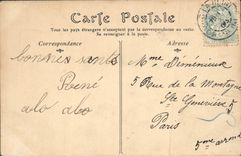 Carte Postale
Tous les pays étrangers n'acceptent pas la correspondance au recto.
Se renseigner à la poste.
Correspondance
Adresse
bonnes santé
René
Mme Déménieux
5 Rue de la Montagne
Ste Geneviève
Paris
5me arrond